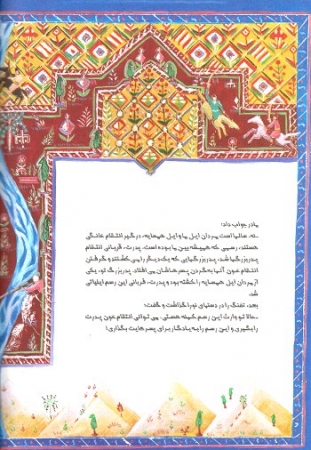 مادر جواب داد:
ـ نه. سالها است مردان ایل ما و ایل همسایه، درگیر انتقام خانگی
هستند، رسمی که همیشه بین ما بوده است. پدرت، قربانی انتقام
پدربزرگها شد. پدربزرگهایی که یکدیگر را می کشتند و گرفتن
انتقام خون آنها به گردن پسرهاشان می افتاد. پدربزرگ تو، یکی
از مردان ایل همسایه را کشته بود و پدرت، قربانی این رسم ایلیاتی
شد.
بعد، تفنگ را در دستهای نورا گذاشت و گفت:
ـ حالا تو وارث این رسم کهنه هستی. می توانی انتقام خون پدرت
را بگیری و این رسم را به یادگار برای پسرهایت بگذاری!